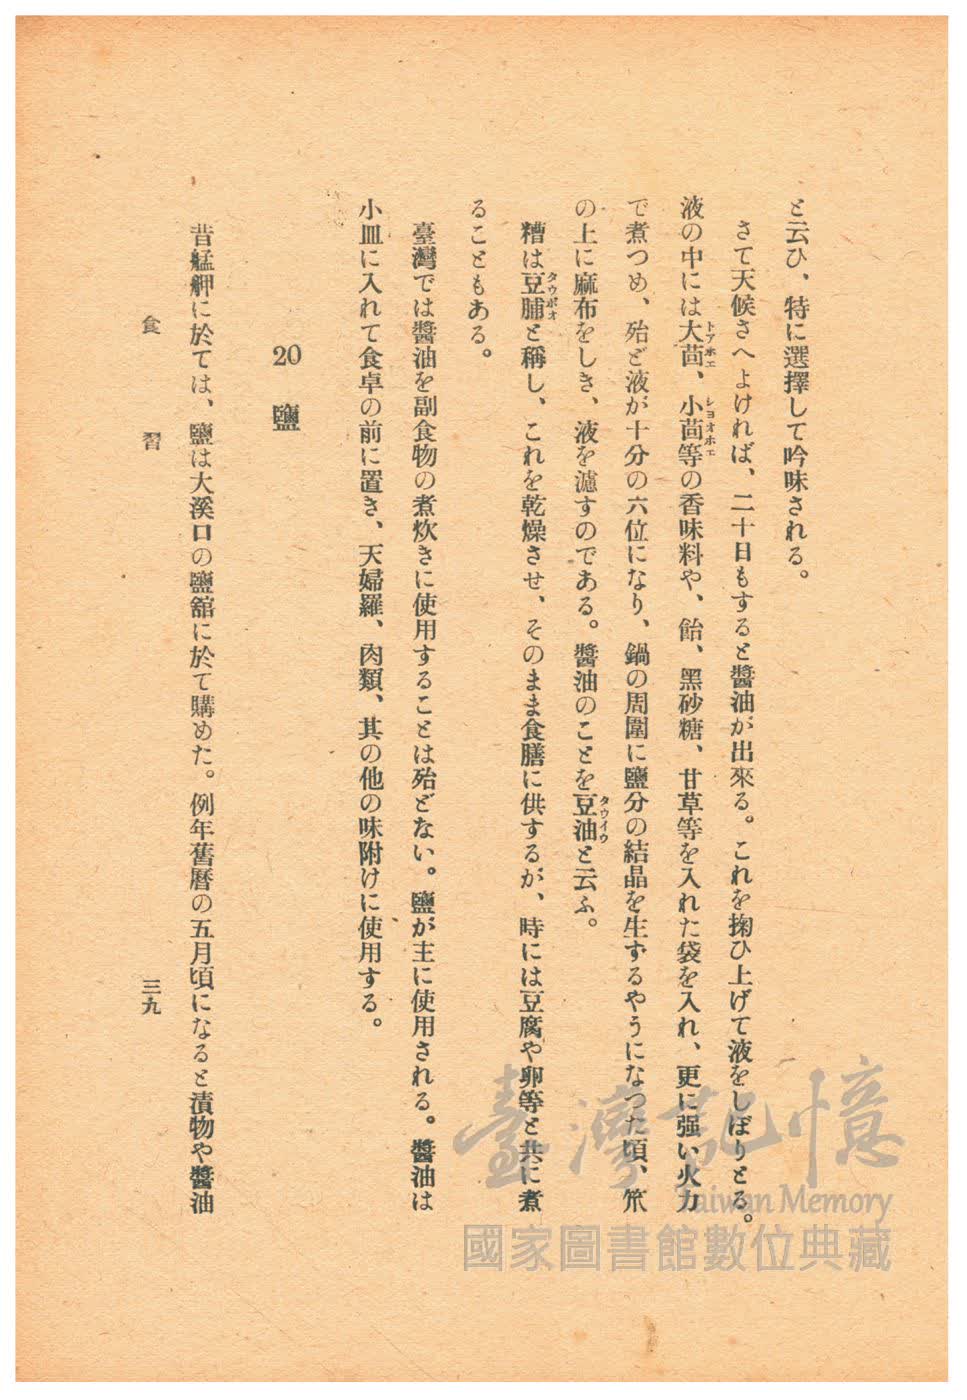 と云ひ、特に選擇して吟味される。
さて天候さへよければ、二十日もすると醬油が出來る。これを掬ひ上げて液をしぼりとる。
液の中には大茴、小茴等の香味料や、飴、黑砂糖、甘草等を入れた袋を入れ、更に强い火力
トアホエ
シヨオホエ
で煮つめ、殆ど液が十分の六位になり、鍋の周圍に鹽分の結晶を生ずるやうになつた頃、笊
の上に麻布をしき、液を濾すのである。醬油のことを豆油と云ふ。
タウイウ
糟は豆脯と稱し、これを乾燥させ、そのまま食膳に供するが、時には豆腐や卵等と共に煮
タウポオ
ることもある。
臺灣では醬油を副食物の煮炊きに使用することは殆どない。鹽が主に使用される。醬油は
小皿に入れて食卓の前に置き、天婦羅、肉類、其の他の味附けに使用する。
20 鹽
昔艋舺に於ては、鹽は大溪口の鹽舘に於て購めた。例年舊曆の五月頃になると漬物や醬油
食習
三九
臺灣記憶
Taiwan Memory
國家圖書館數位典藏